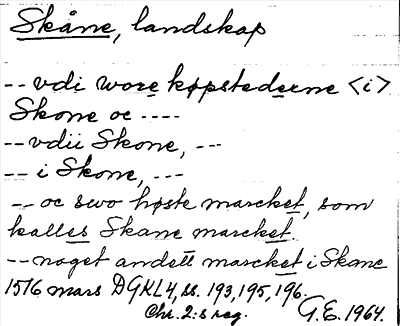 Skåne, landskap
-- vdi wore køpstederne <i>
Skone oc ----
-- vdii Skone, ---
-- i Skone, ---
-- oc swo høste marcket, som
kalles Skane marcket.
-- noget andett marcket i Skane
1516 mars DGKL4, ss. 193, 195, 196.
Chr. 2:s reg. G.E. 1964.